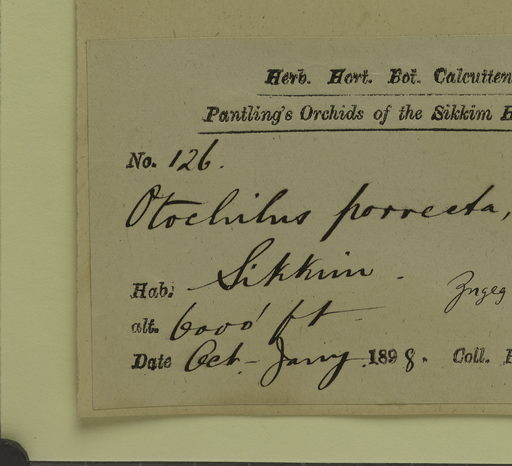 Herb. Hort. Bot. Calcutten
Pantling's Orchids of the Sikkim H
No. 126.
Otochilus porrecta,
Hab: Sikkim.
alt. 6000' ft
Date Oct - Jany 1898. Coll.